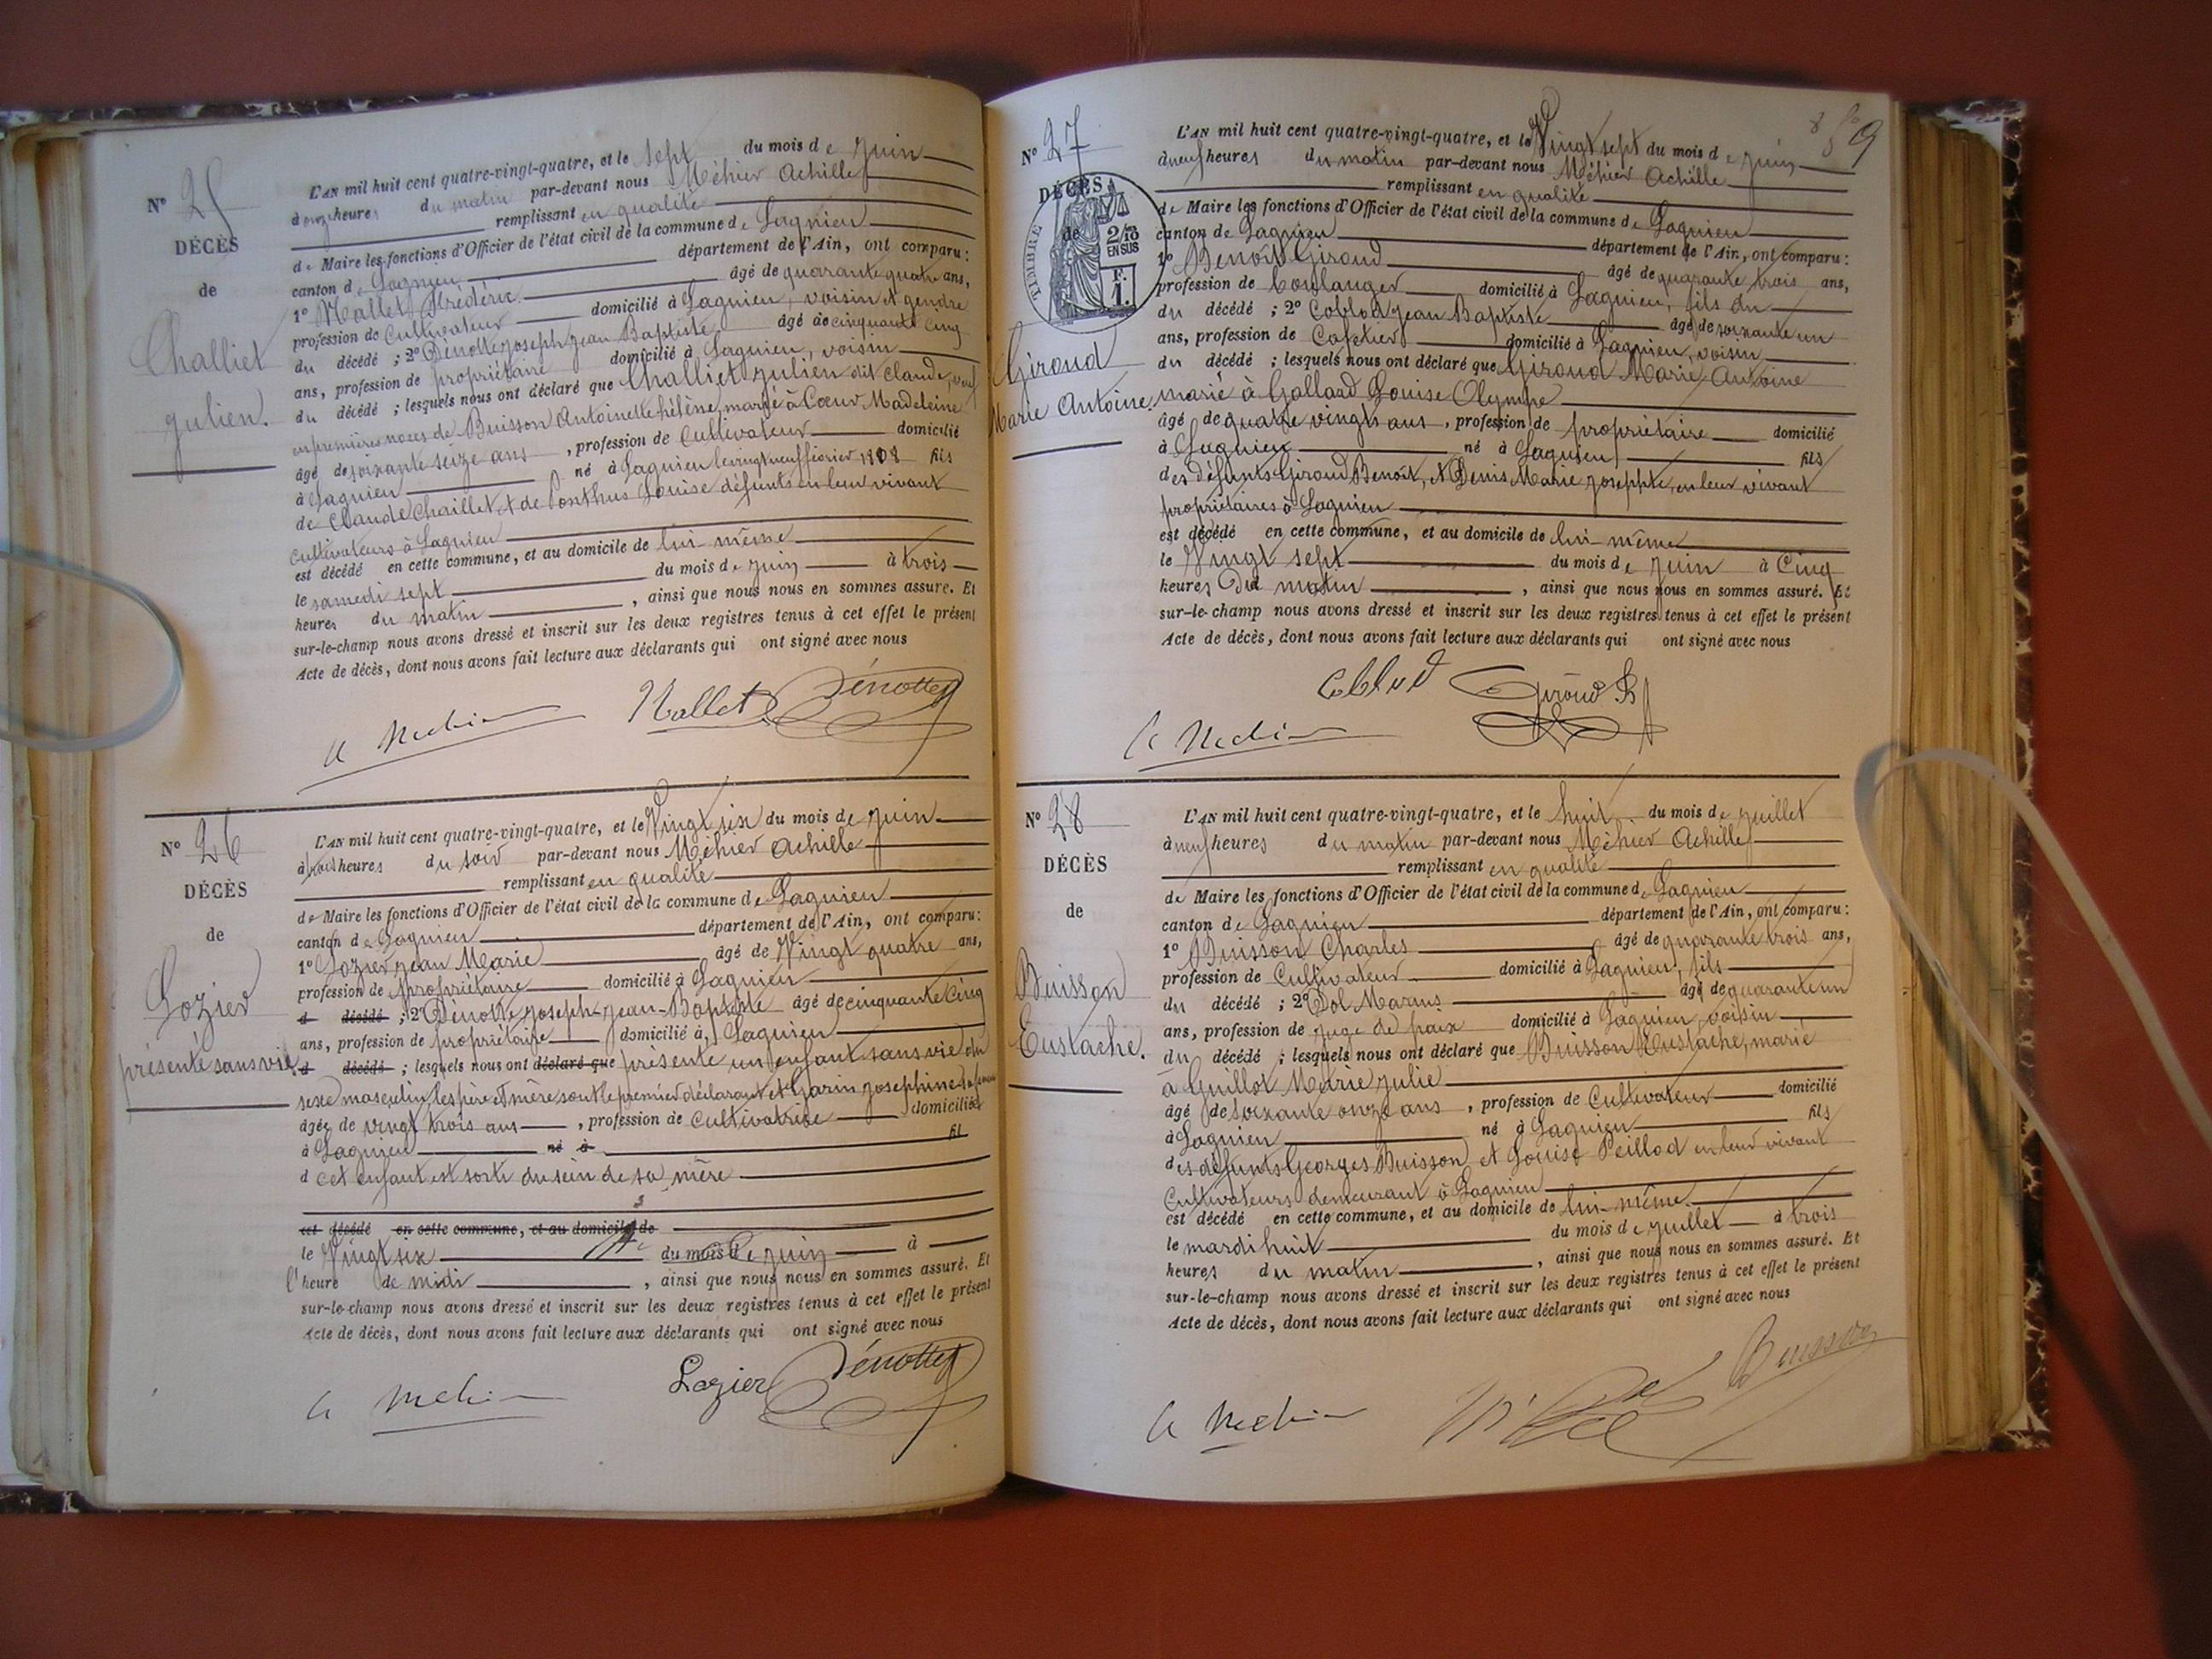 N° 25
DÉCÈS
de
Challiet
Julien.
L'AN mil huit cent quatre-vingt-quatre, et le sept du mois de Juin
à onze heures du matin par-devant nous Méhier Achille
remplissant en qualité
de Maire les fonctions d'Officier de l'état civil de la commune de Lagnieu
canton de Lagnieu département de l'Ain, ont comparu:
1° Mallet Frédéric âgé de quarante quatre ans,
profession de Cultivateur domicilié à Lagnieu, voisin et gendre
du décédé; 2° Dénotte Joseph Jean Baptiste âgé de cinquante cinq
ans, profession de propriétaire domicilié à Lagnieu, voisin
du décédé; lesquels nous ont déclaré que Challiet Julien dit Claude, veuf
en premières noces de Buisson Antoinette hélène, marié à Cœur Madeleine
âgé de soixante seize ans, profession de Cultivateur domicilié
à Lagnieu né à Lagnieu le vingt neuf février 1808 fils
de Claude Chaillet et de Ponthus Louise défunts en leur vivant
Cultivateurs à Lagnieu
est décédé en cette commune, et au domicile de lui-même
le samedi sept du mois de Juin à trois
heures du matin, ainsi que nous nous en sommes assuré. Et
sur-le-champ nous avons dressé et inscrit sur les deux registres tenus à cet effet le présent
Acte de décès, dont nous avons fait lecture aux déclarants qui ont signé avec nous
Mallet Dénotte
N° 26
DÉCÈS
de
Lozier
présenté sans vie
L'AN mil huit cent quatre-vingt-quatre, et le Vingt six du mois de Juin
à trois heures du soir par-devant nous Méhier Achille
remplissant en qualité
de Maire les fonctions d'Officier de l'état civil de la commune de Lagnieu
canton de Lagnieu département de l'Ain, ont comparu:
1° Lozier Jean Marie âgé de Vingt quatre ans,
profession de propriétaire domicilié à Lagnieu
d décédé; 2° Dénotte Joseph-Jean-Baptiste âgé de cinquante cinq
ans, profession de propriétaire domicilié à Lagnieu
d décédé; lesquels nous ont déclaré que présenté un enfant sans vie du
sexe masculin, les père et mère sont le premier déclarant et Garin Josephine sa femme
âgée de vingt trois ans, profession de Cultivatrice domiciliée
à Lagnieu né à fil
d cet enfant est sorti du sein de sa mère
est décédé en cette commune, et au domicile de
le Vingt six du mois de Juin à
l'heure de midi, ainsi que nous nous en sommes assuré. Et
sur-le-champ nous avons dressé et inscrit sur les deux registres tenus à cet effet le présent
Acte de décès, dont nous avons fait lecture aux déclarants qui ont signé avec nous
Lozier Dénotte
59
N° 27
DÉCÈS
de
TIMBRE
2/10
EN SUS
F.
1.
Giroud
Marie Antoine.
L'AN mil huit cent quatre-vingt-quatre, et le Vingt sept du mois de Juin
à neuf heures du matin par-devant nous Méhier Achille
remplissant en qualité
de Maire les fonctions d'Officier de l'état civil de la commune de Lagnieu
canton de Lagnieu département de l'Ain, ont comparu:
1° Benoît Giroud âgé de quarante trois ans,
profession de boulanger domicilié à Lagnieu, fils du
du décédé; 2° Coblod Jean Baptiste âgé de soixante un
ans, profession de Cafetier domicilié à Lagnieu, voisin
du décédé; lesquels nous ont déclaré que Giroud Marie Antoine
marié à Gallard Louise Olympe
âgé de quatre vingts ans, profession de propriétaire domicilié
à Lagnieu né à Lagnieu fils
des défunts Giroud Benoît, et Denis Marie Josephte, en leur vivant
propriétaires à Lagnieu
est décédé en cette commune, et au domicile de lui-même
le Vingt sept du mois de Juin à Cinq
heures du matin, ainsi que nous nous en sommes assuré. Et
sur-le-champ nous avons dressé et inscrit sur les deux registres tenus à cet effet le présent
Acte de décès, dont nous avons fait lecture aux déclarants qui ont signé avec nous
Coblod Giroud B
N° 28
DÉCÈS
de
Buisson
Eustache.
L'AN mil huit cent quatre-vingt-quatre, et le huit du mois de Juillet
à neuf heures du matin par-devant nous Méhier Achille
remplissant en qualité
de Maire les fonctions d'Officier de l'état civil de la commune de Lagnieu
canton de Lagnieu département de l'Ain, ont comparu:
1° Buisson Charles âgé de quarante trois ans,
profession de Cultivateur domicilié à Lagnieu, fils
du décédé; 2° Dol Marius âgé de quarante un
ans, profession de juge de paix domicilié à Lagnieu, voisin
du décédé; lesquels nous ont déclaré que Buisson Eustache, marié
à Guillot Marie Julie
âgé de soixante onze ans, profession de Cultivateur domicilié
à Lagnieu né à Lagnieu fils
des défunts Georges Buisson et Louise Peillod en leur vivant
Cultivateurs demeurant à Lagnieu
est décédé en cette commune, et au domicile de lui-même
le mardi huit du mois de Juillet à trois
heures du matin, ainsi que nous nous en sommes assuré. Et
sur-le-champ nous avons dressé et inscrit sur les deux registres tenus à cet effet le présent
Acte de décès, dont nous avons fait lecture aux déclarants qui ont signé avec nous
Buisson